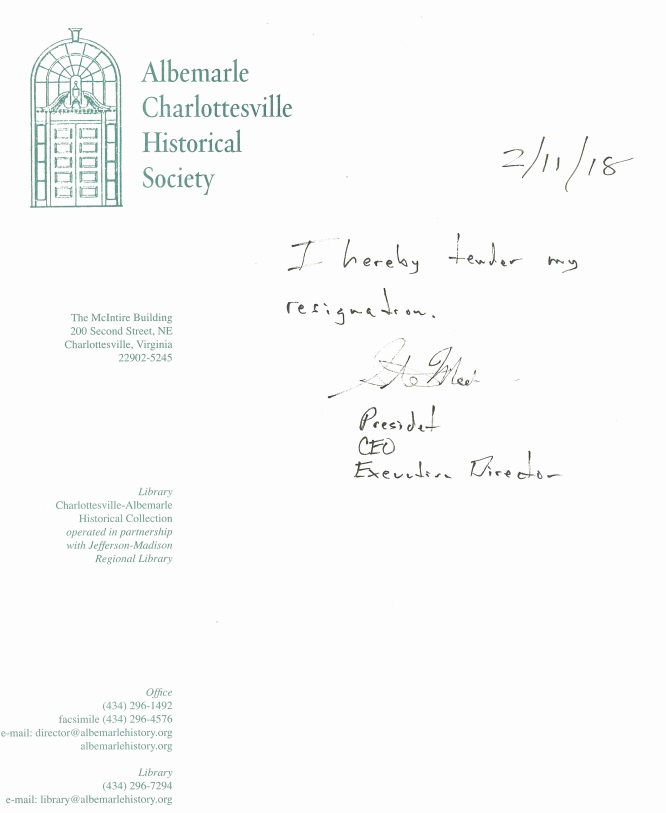 Albemarle
Charlottesville
Historical
Society
2/11/18
I hereby tender my
resignation.
The McIntire Building
200 Second Street, NE
Charlottesville, Virginia
22902-5245
Presidet
CEO
Executive Director
Library
Charlottesville-Albemarle
Historical Collection
operated in partnership
with Jefferson-Madison
Regional Library
Office
(434) 296-1492
facsimile (434) 296-4576
e-mail: director@albemarlehistory.org
albemarlehistory.org
Library
(434) 296-7294
e-mail: library@albemarlehistory.org